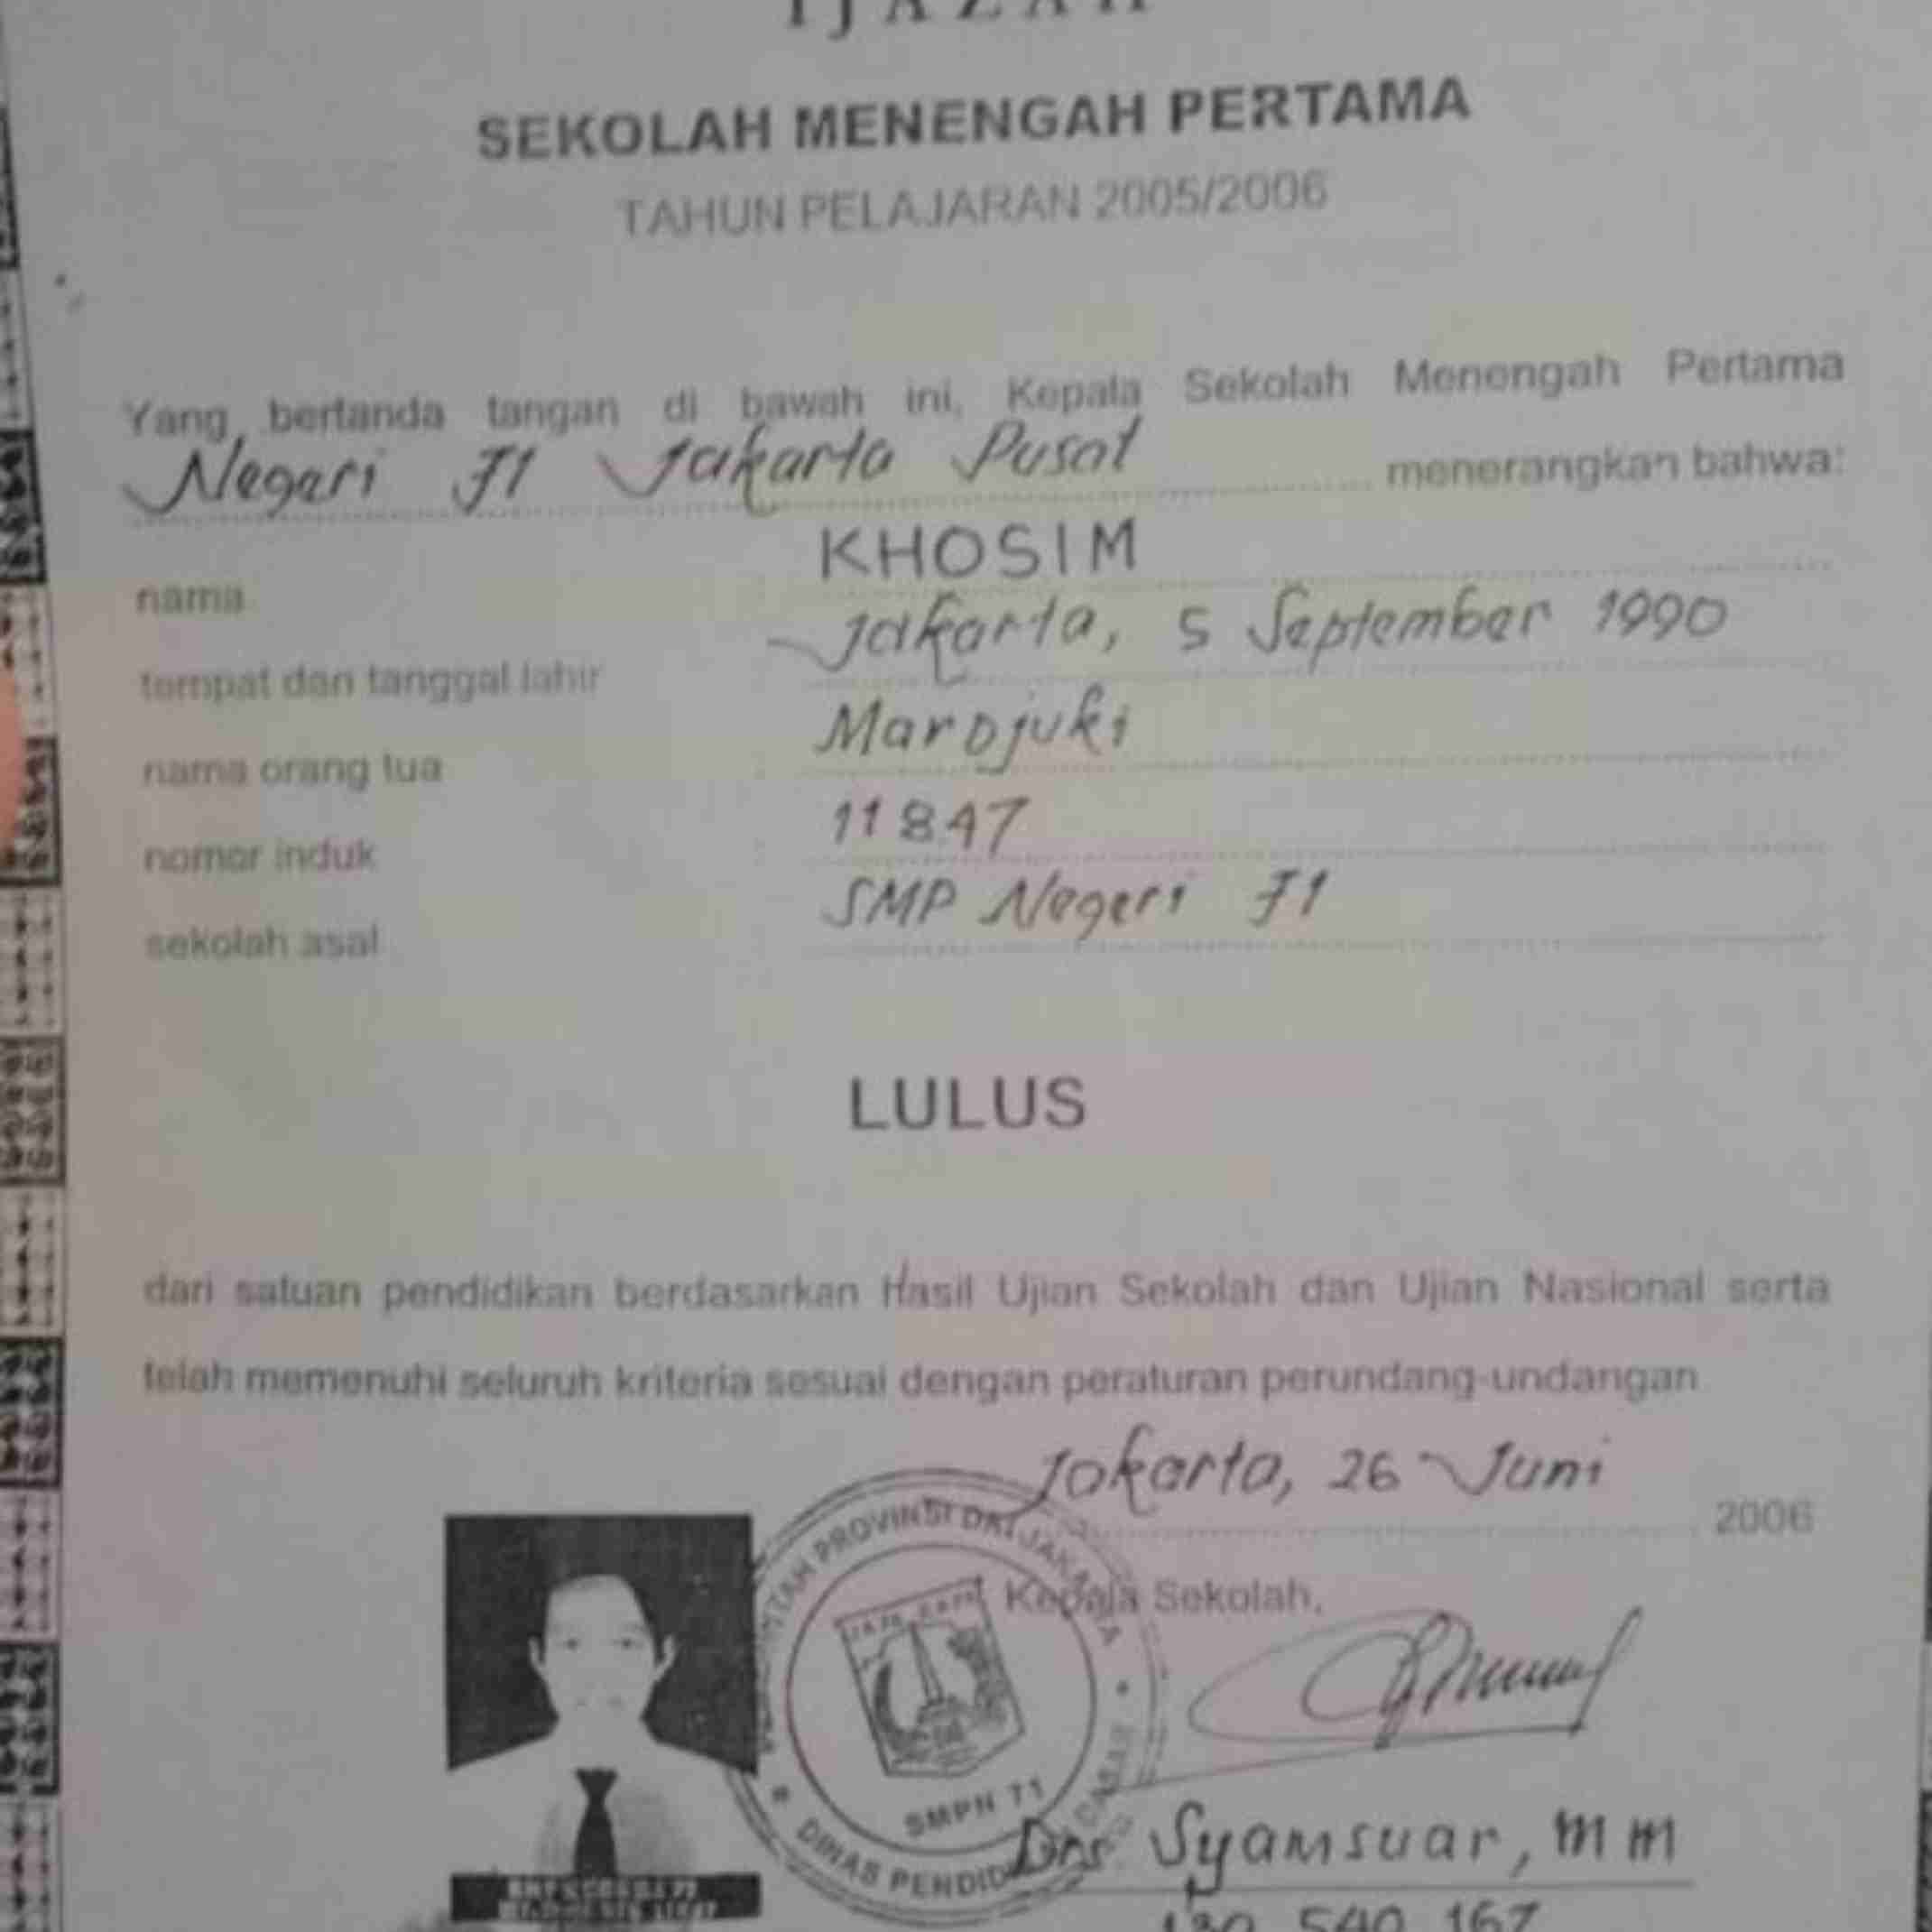 IJAZAH
SEKOLAH MENENGAH PERTAMA
TAHUN PELAJARAN 2005/2006
Yang bertanda tangan di bawah ini, Kepala Sekolah Menengah Pertama
Negeri 71 Jakarta Pusat menerangkan bahwa:
nama KHOSIM
tempat dan tanggal lahir Jakarta, 5 September 1990
nama orang tua Mardjuki
nomor induk 11847
sekolah asal SMP Negeri 71
LULUS
dari satuan pendidikan berdasarkan Hasil Ujian Sekolah dan Ujian Nasional serta
telah memenuhi seluruh kriteria sesuai dengan peraturan perundang-undangan
Jakarta, 26 Juni 2006
Kepala Sekolah,
PROVINSI DKI JAKARTA
JAYA RAYA
SMPN 71
DINAS DASAR
Drs. Syamsuar, MM
130 540 167